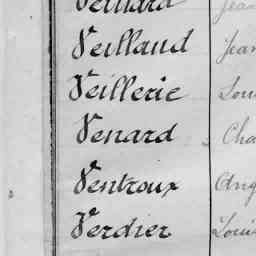 Veillard Jean
Veillaud Jean
Veillerie Lou
Venard Cha
Ventroux Ang
Verdier Louis